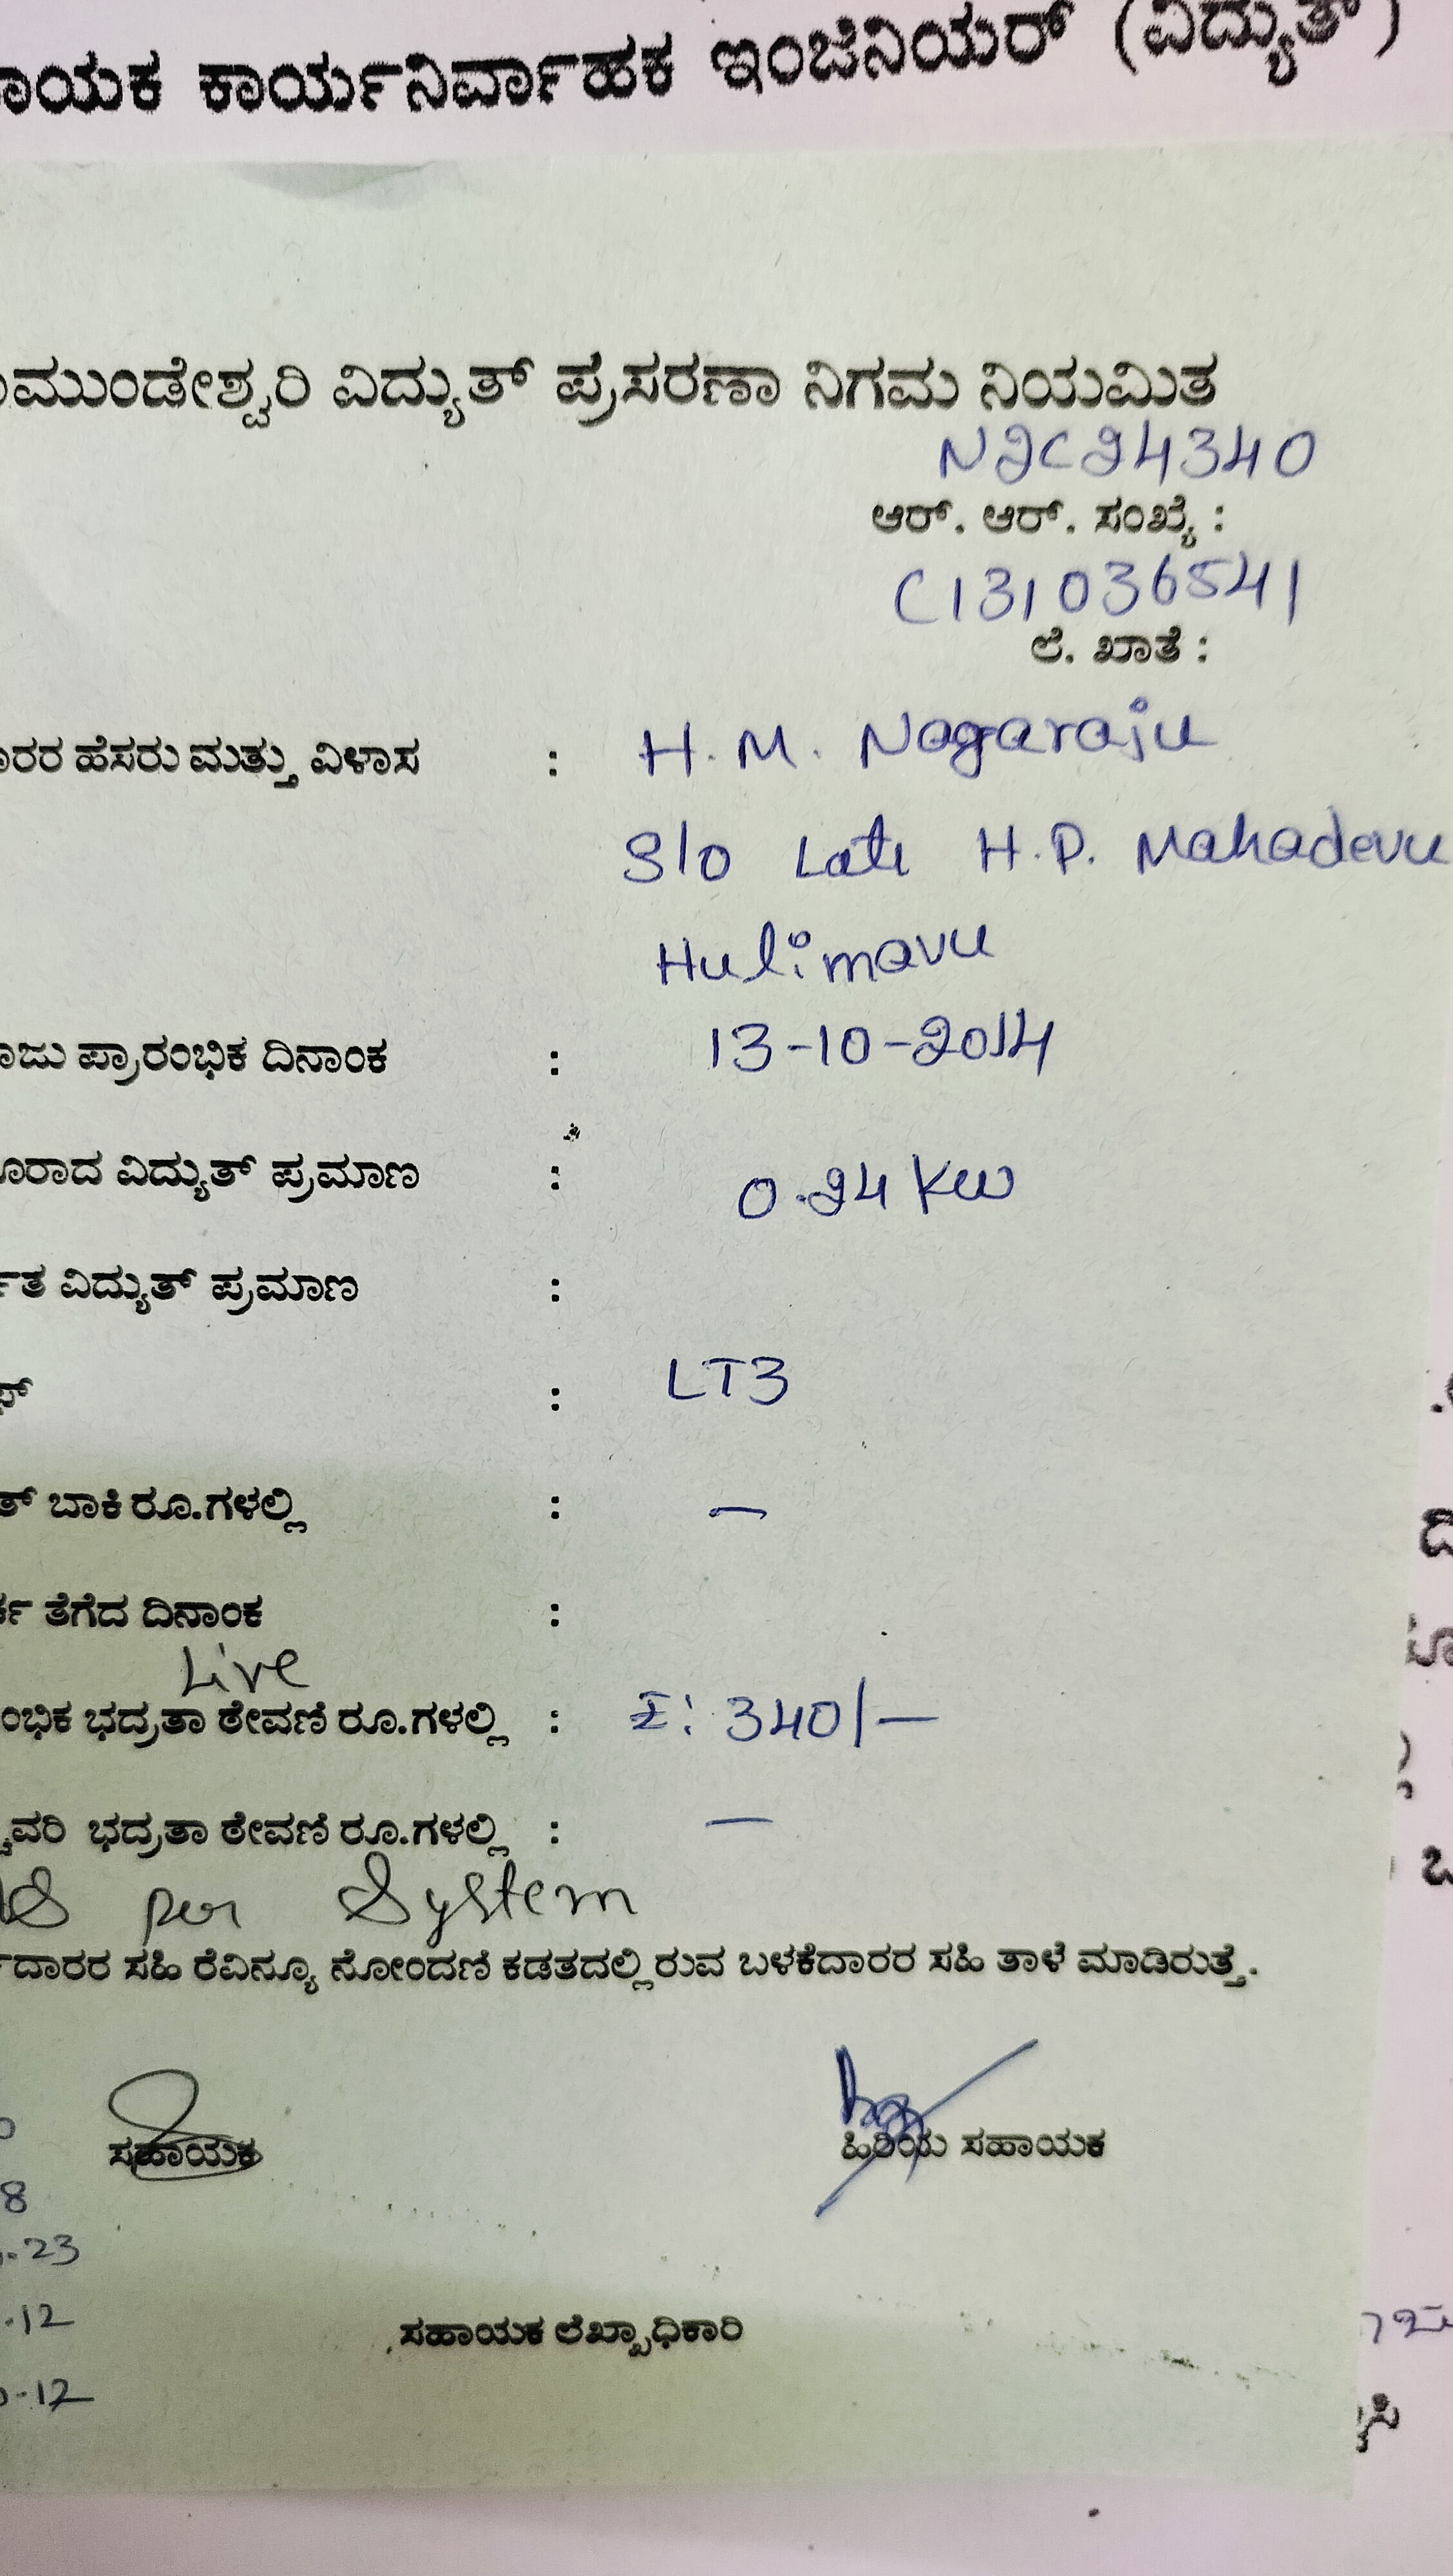 ಕಾರ್ಯನಿರ್ವಾಹಕ ಇಂಜಿನಿಯರ್ (ವಿದ್ಯುತ್)
ಮುಂಡೇಶ್ವರಿ ವಿದ್ಯುತ್ ಪ್ರಸರಣಾ ನಿಗಮ ನಿಯಮಿತ
N2C24340
ಆರ್. ಆರ್. ಸಂಖ್ಯೆ :
C131036541
ಲೆ. ಖಾತೆ :
ಾರರ ಹೆಸರು ಮತ್ತು ವಿಳಾಸ : H. M. Nagaraju
S/o Late H.P. Mahadevu
Hulimavu
ಾಜು ಪ್ರಾರಂಭಿಕ ದಿನಾಂಕ : 13-10-2014
ೂರಾದ ವಿದ್ಯುತ್ ಪ್ರಮಾಣ : 0.24 KW
ರ್ತ ವಿದ್ಯುತ್ ಪ್ರಮಾಣ :
: LT3
ತ್ ಬಾಕಿ ರೂ.ಗಳಲ್ಲಿ : —
ತೆಗೆದ ದಿನಾಂಕ :
Live
ಂಭಿಕ ಭದ್ರತಾ ಠೇವಣಿ ರೂ.ಗಳಲ್ಲಿ : I: 340/—
್ಚುವರಿ ಭದ್ರತಾ ಠೇವಣಿ ರೂ.ಗಳಲ್ಲಿ : —
As per System
ದಾರರ ಸಹಿ ರೆವಿನ್ಯೂ ನೋಂದಣಿ ಕಡತದಲ್ಲಿರುವ ಬಳಕೆದಾರರ ಸಹಿ ತಾಳೆ ಮಾಡಿರುತ್ತೆ.
ಸಹಾಯಕ ಹಿರಿಯ ಸಹಾಯಕ
8
.23
.12
ಸಹಾಯಕ ಲೆಖ್ಖಾಧಿಕಾರಿ
-12